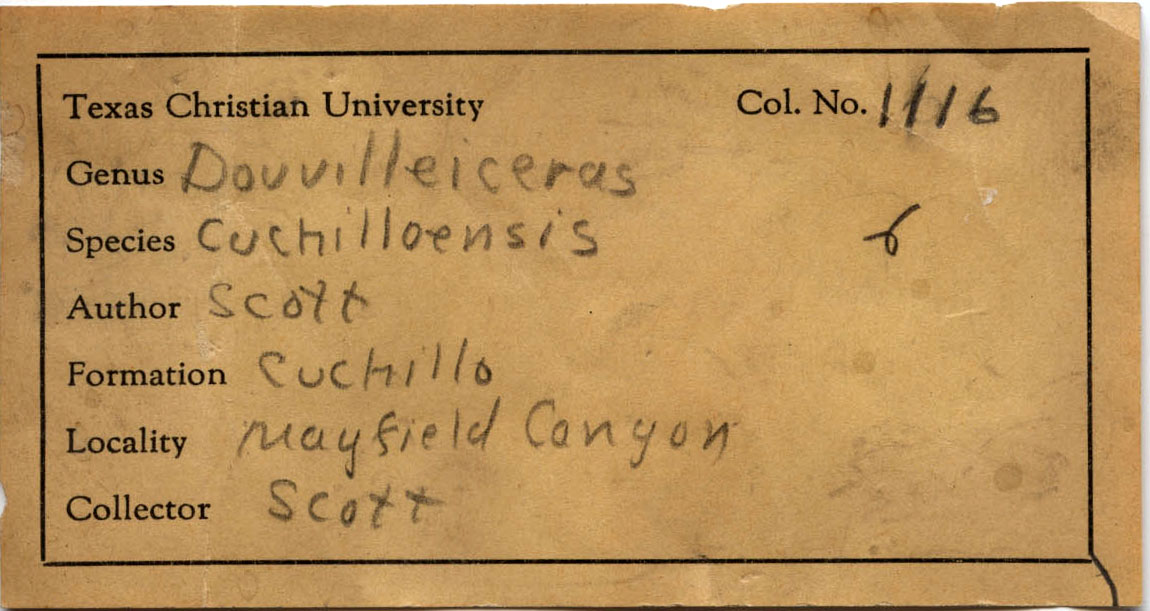 Texas Christian University Col. No. 1116
Genus Douvilleiceras
Species Cuchilloensis 6
Author Scott
Formation Cuchillo
Locality Mayfield Canyon
Collector Scott